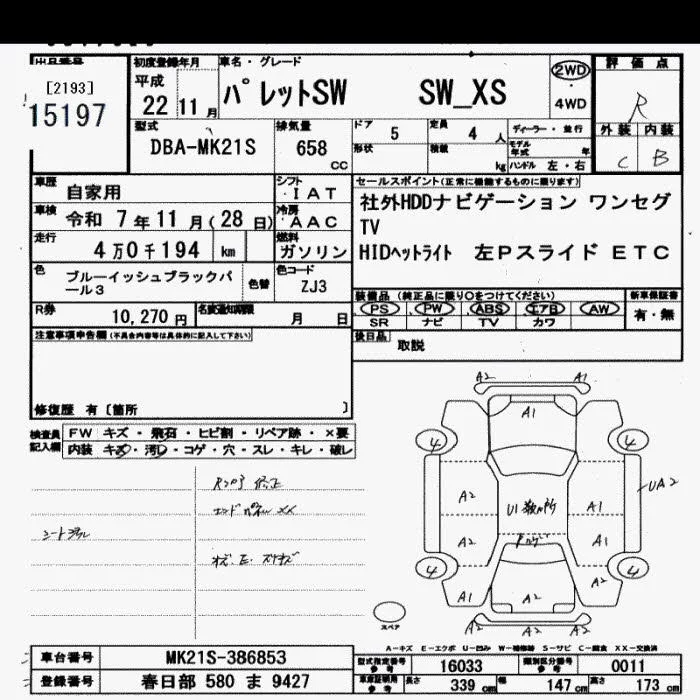 出品番号
[2193]
15197
初度登録年月
平成
22 11 月
車名・グレード
パレットSW SW_XS
2WD
・
4WD
評価点
R
外装 内装
C B
型式
DBA-MK21S
排気量
658 cc
ドア 5
定員 4 人
ディーラー・並行
形状
積載 kg
モデル年式 年
ハンドル 左・右
車歴 自家用
シフト IAT
車検 令和 7 年 11 月 (28 日)
冷房 AAC
走行 4 万 0 千 194 km
燃料 ガソリン
色 ブルーイッシュブラックパール3
色替
色コード ZJ3
R券 10,270 円
名変通知期限 月 日
セールスポイント(正常に機能するものに限ります)
社外HDDナビゲーション ワンセグ
TV
HIDヘットライト 左Pスライド ETC
装備品 (純正品に限り○をつけてください)
PS PW ABS エアB AW
SR ナビ TV カワ
新車保証書
有・無
後日品 取説
注意事項申告欄(不具合内容等は具体的に記入して下さい)
修復歴 有〔箇所 〕
検査員記入欄
FW キズ・飛石・ヒビ割・リペア跡・×要
内装 キズ・汚レ・コゲ・穴・スレ・キレ・破レ
修正
XX
A2 A1
A1
4 4
A2 A1
UA2
U1
A2 A1
4 4
A1 A2 A2
A2
スペア
A-キズ E-エクボ U-凹み W-補修跡 S-サビ C-腐食 XX-交換済
車台番号 MK21S-386853
登録番号 春日部 580 ま 9427
型式指定番号 参考 16033
類別区分番号 参考 0011
車庫証明用 参考 長さ 339 cm 幅 147 cm 高さ 173 cm